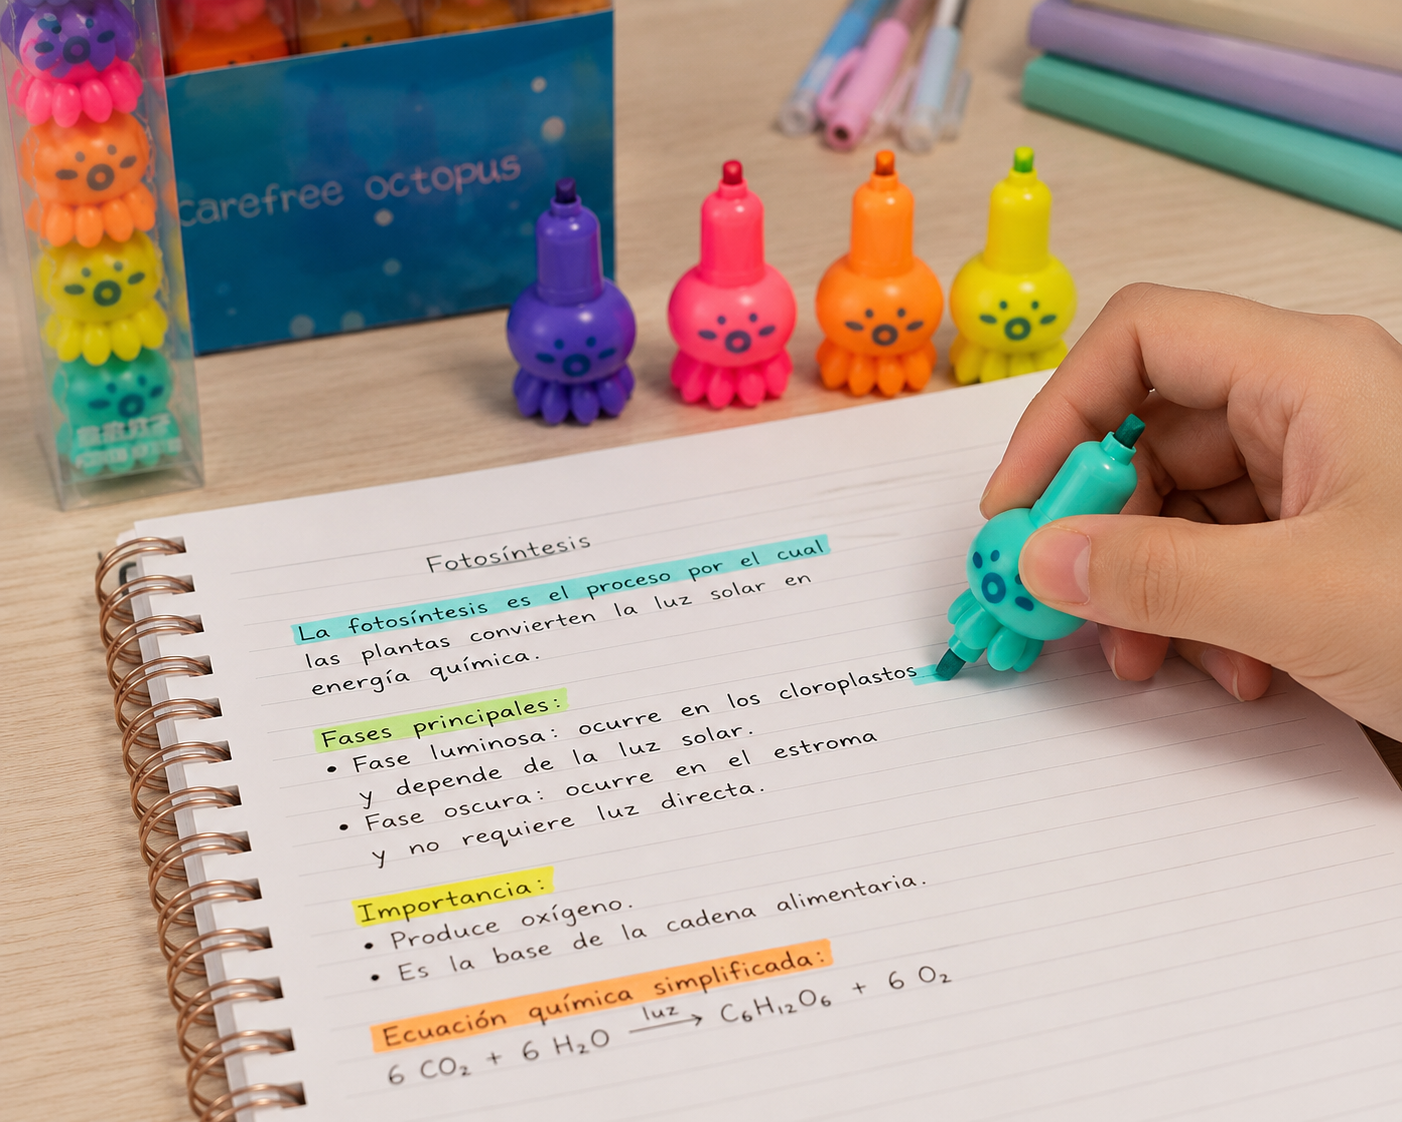 carefree octopus
Fotosíntesis
La fotosíntesis es el proceso por el cual
las plantas convierten la luz solar en
energía química.
Fases principales:
• Fase luminosa: ocurre en los cloroplastos
y depende de la luz solar.
• Fase oscura: ocurre en el estroma
y no requiere luz directa.
Importancia:
• Produce oxígeno.
• Es la base de la cadena alimentaria.
Ecuación química simplificada:
6 CO₂ + 6 H₂O luz→ C₆H₁₂O₆ + 6 O₂